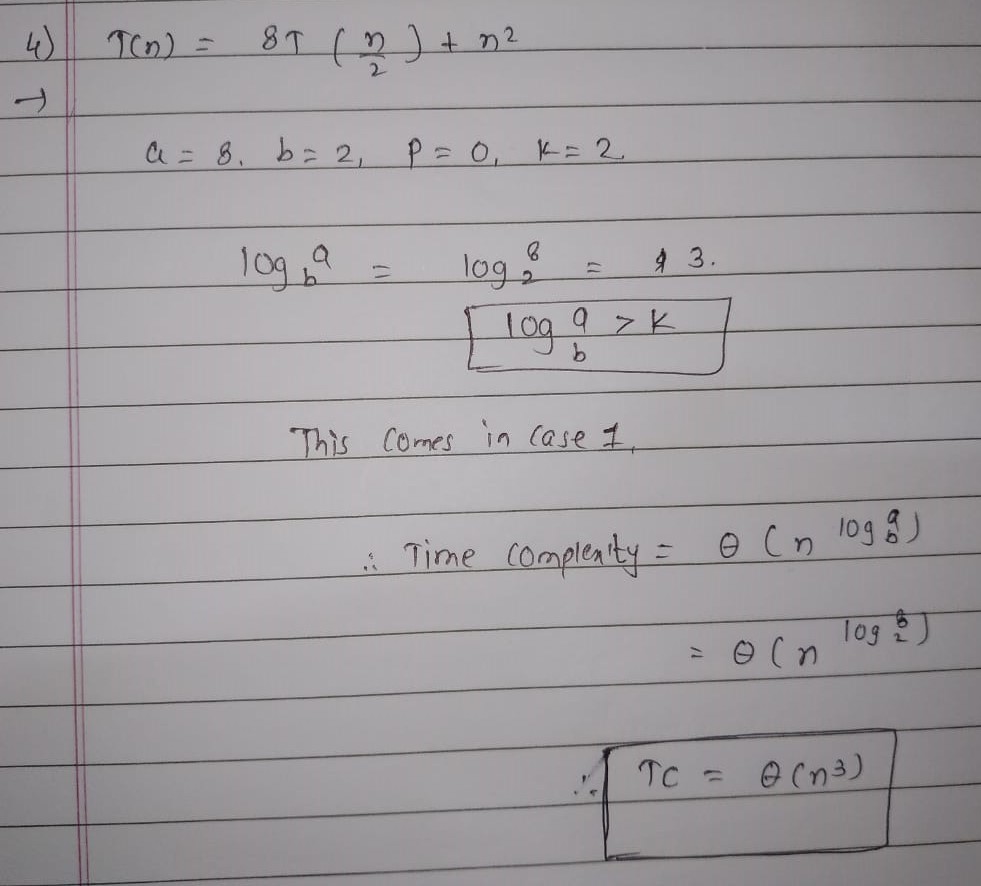 4) T(n) = 8T (n/2) + n²
→
a = 8, b = 2, P = 0, K = 2
log_b a = log_2 8 = 3.
log_b a > K
This comes in case 1,
∴ Time complexity = θ (n^(log_b a))
= θ (n^(log_2 8))
∴ TC = θ (n³)